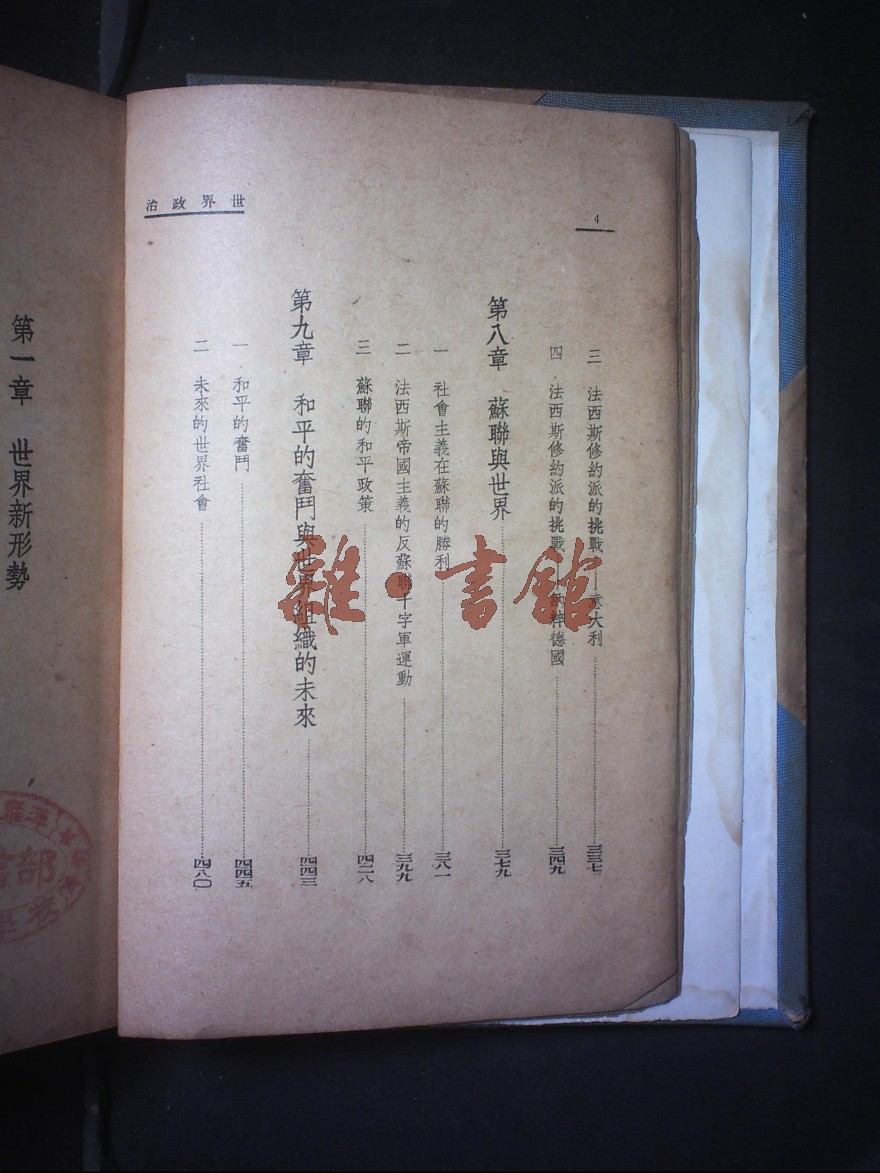 世界政治
4
三 法西斯修約派的挑戰——意大利……三三七
四 法西斯修約派的挑戰——納粹德國……三四九
第八章 蘇聯與世界……三七九
一 社會主義在蘇聯的勝利……三八一
二 法西斯帝國主義的反蘇聯十字軍運動……三九九
三 蘇聯的和平政策……四二八
第九章 和平的奮鬥與世界組織的未來……四四三
一 和平的奮鬥……四四五
二 未來的世界社會……四八〇
第一章 世界新形勢
雜·書館
部